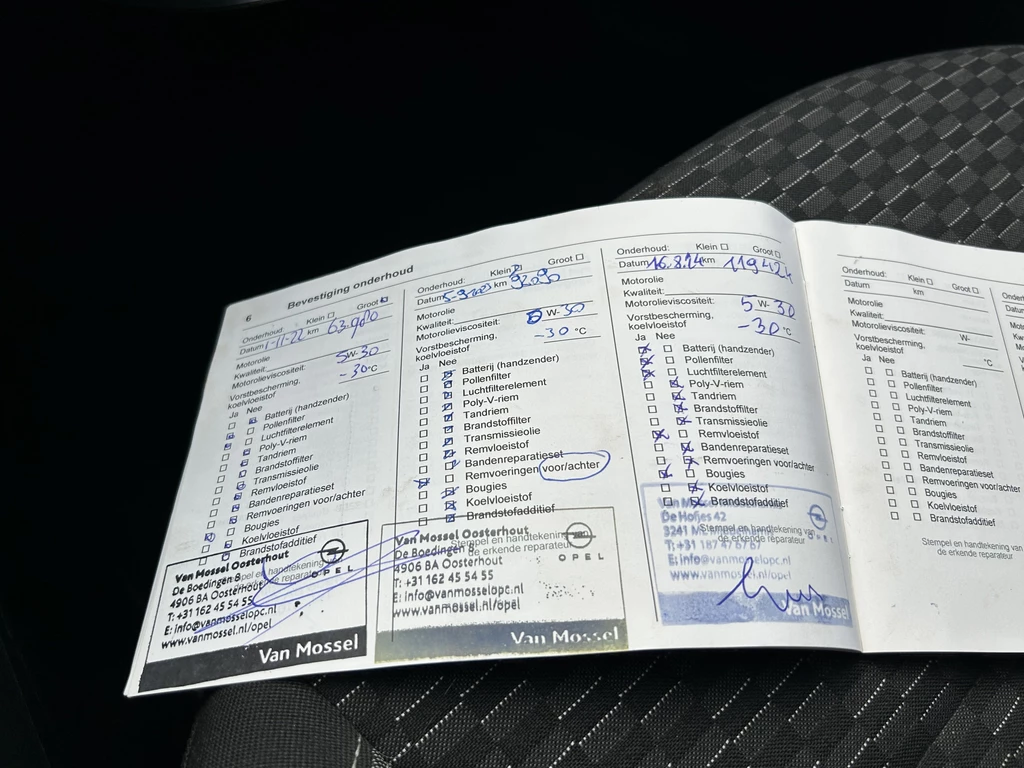 6 Bevestiging onderhoud
Onderhoud: Klein Groot
Datum 1-11-22 km 63.980
Motorolie
Kwaliteit:
Motorolieviscositeit: 5W-30
Vorstbescherming,
koelvloeistof -30°C
Ja Nee
Batterij (handzender)
Pollenfilter
Luchtfilterelement
Poly-V-riem
Tandriem
Brandstoffilter
Transmissieolie
Remvloeistof
Bandenreparatieset
Remvoeringen voor/achter
Bougies
Koelvloeistof
Brandstofadditief
Stempel en handtekening van
de erkende reparateur
Van Mossel Oosterhout
De Boedingen 8
4906 BA Oosterhout
T: +31 162 45 54 55
E: info@vanmosselopc.nl
www.vanmossel.nl/opel
OPEL
Van Mossel
Onderhoud: Klein Groot
Datum 5-9-2023 km 92090
Motorolie
Kwaliteit:
Motorolieviscositeit: 0 W-30
Vorstbescherming,
koelvloeistof -30 °C
Ja Nee
Batterij (handzender)
Pollenfilter
Luchtfilterelement
Poly-V-riem
Tandriem
Brandstoffilter
Transmissieolie
Remvloeistof
Bandenreparatieset
Remvoeringen voor/achter
Bougies
Koelvloeistof
Brandstofadditief
Stempel en handtekening van
de erkende reparateur
Van Mossel Oosterhout
De Boedingen 8
4906 BA Oosterhout
T: +31 162 45 54 55
E: info@vanmosselopc.nl
www.vanmossel.nl/opel
OPEL
Van Mossel
Onderhoud: Klein Groot
Datum 16.8.24 km 119424
Motorolie
Kwaliteit:
Motorolieviscositeit: 5 W-30
Vorstbescherming,
koelvloeistof -30 °C
Ja Nee
Batterij (handzender)
Pollenfilter
Luchtfilterelement
Poly-V-riem
Tandriem
Brandstoffilter
Transmissieolie
Remvloeistof
Bandenreparatieset
Remvoeringen voor/achter
Bougies
Koelvloeistof
Brandstofadditief
Stempel en handtekening van
de erkende reparateur
De Hofjes 42
3241
T: +31 187 47 67 67
E: info@vanmosselopc.nl
www.vanmossel.nl/opel
OPEL
Van Mossel
Onderhoud: Klein Groot
Datum km
Motorolie
Kwaliteit:
Motorolieviscositeit: W-
Vorstbescherming,
koelvloeistof °C
Ja Nee
Batterij (handzender)
Pollenfilter
Luchtfilterelement
Poly-V-riem
Tandriem
Brandstoffilter
Transmissieolie
Remvloeistof
Bandenreparatieset
Remvoeringen voor/achter
Bougies
Koelvloeistof
Brandstofadditief
Stempel en handtekening van
de erkende reparateur